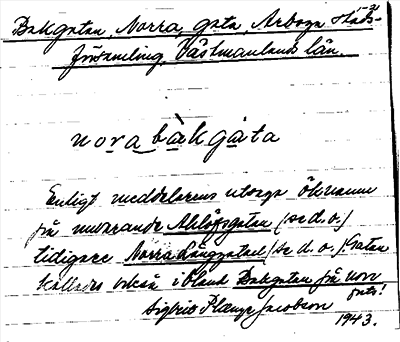 Bakgatan, Norra, gata, Arboga stads-
församling, Västmanlands län.
nora bàkgáta
Enligt meddelarens utsago öknamn
på nuvarande Ahllöfsgatan (se d.o.)
tidigare Norra Långgatan (se d.o.) Gatan
kallades också ibland Bakgatan på norr
Sigbrit Plænge Jacobson
1943.